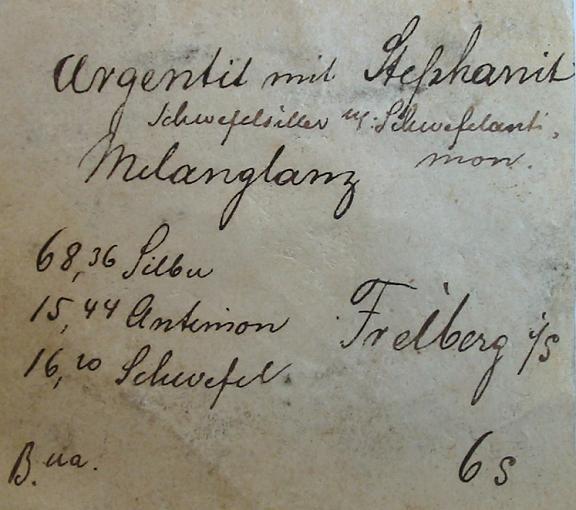 Argentit mit Stephanit
Schwefelsilber u. Schwefelanti-
mon.
Melanglanz
68,36 Silber
15,44 Antimon
16,20 Schwefel
Freiberg i/S
6 S